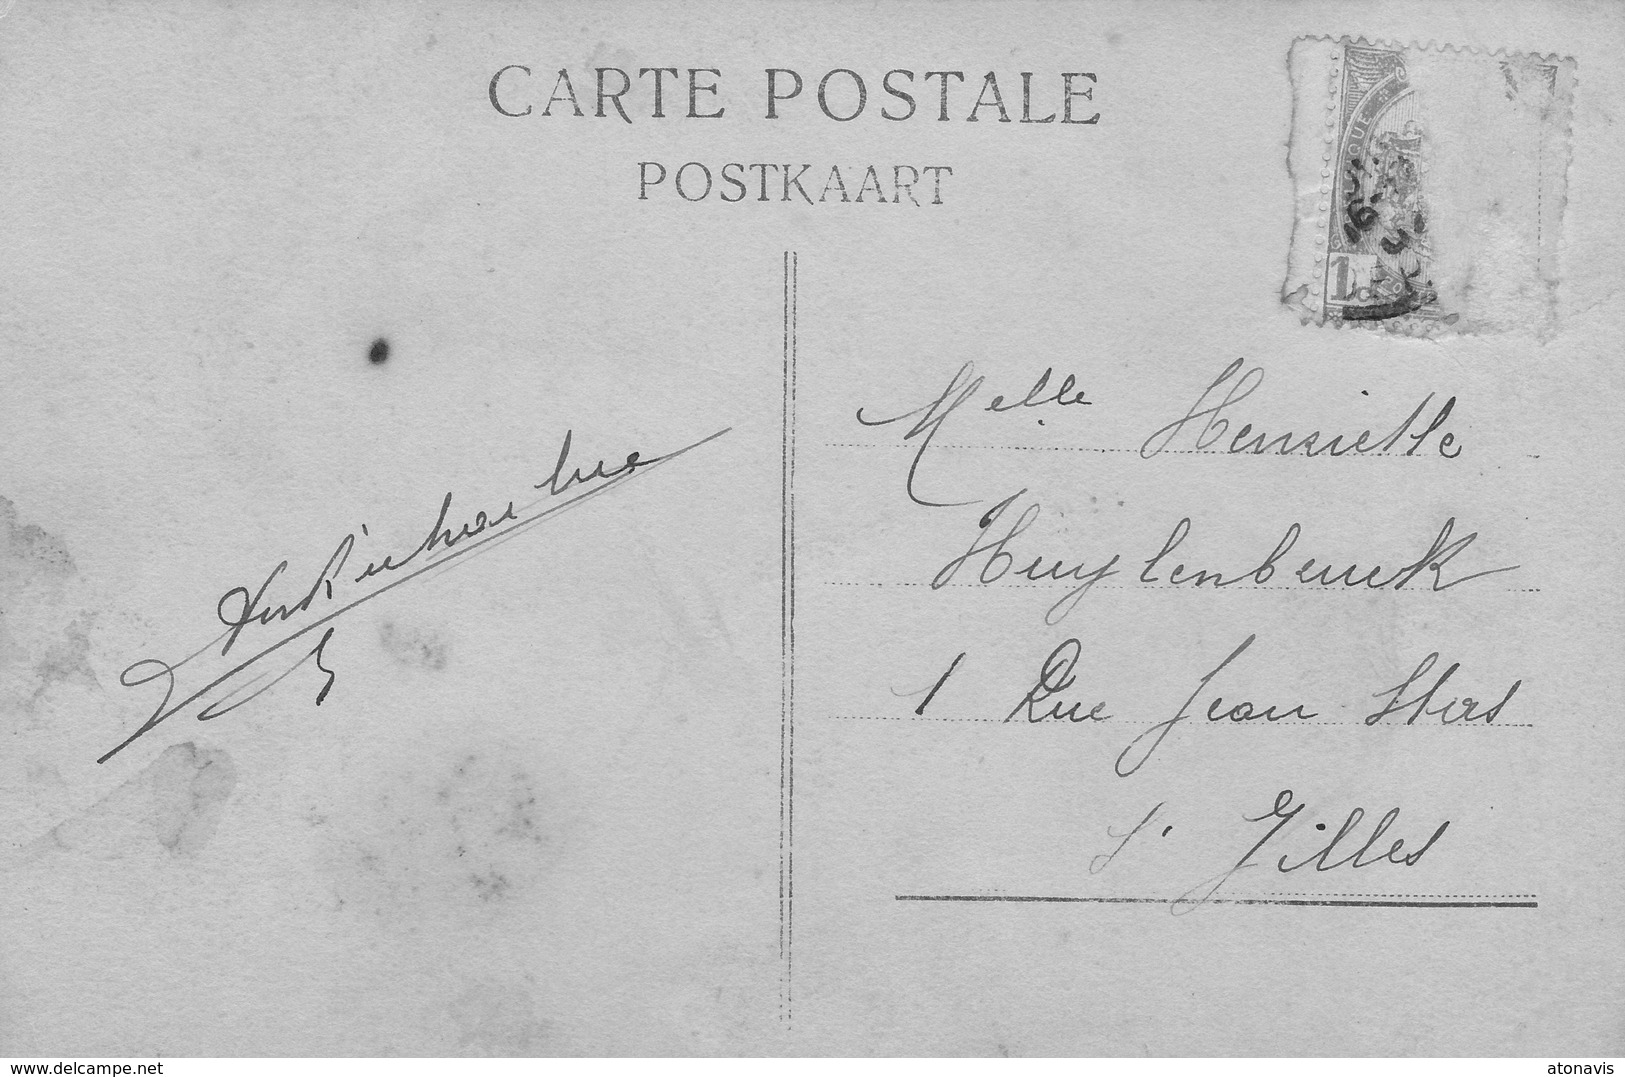 CARTE POSTALE
POSTKAART
QUE
1
Melle Henriette
Huylenbeurck
1 Rue Jean Stas
St Gilles
www.delcampe.net
atonavis